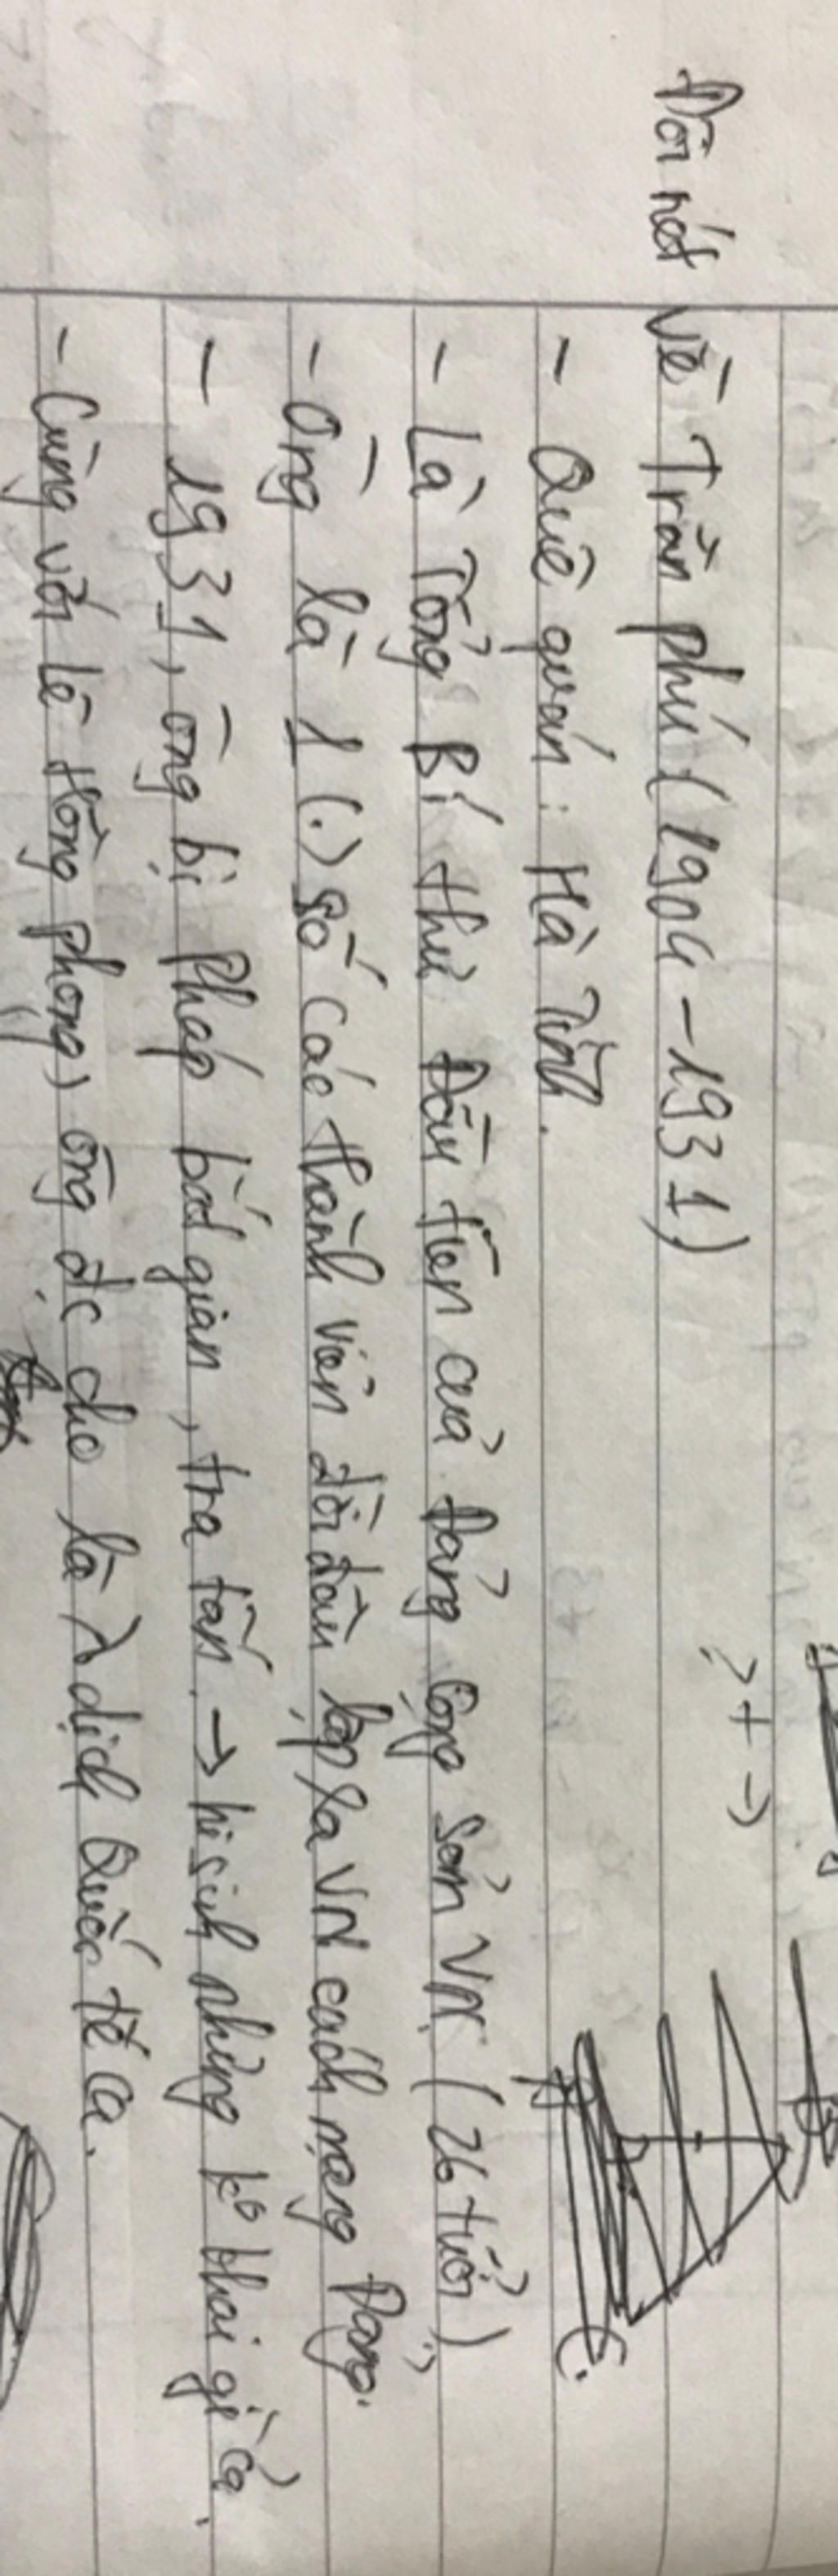 Đôi nét về Trần Phú (1904 - 1931)
- Quê quán: Hà Tĩnh.
- Là Tổng Bí thư đầu tiên của Đảng Cộng sản VN (26 tuổi),
- Ông là 1 (.) số các thành viên đời đầu lập ra VN cách mạng Đảng.
- 1931, ông bị Pháp bắt gian, tra tấn. → hi sinh nhưng ko khai gì cả.
- Cùng với Lê Hồng Phong, ông đc cho là λ dịch Quốc tế ca.